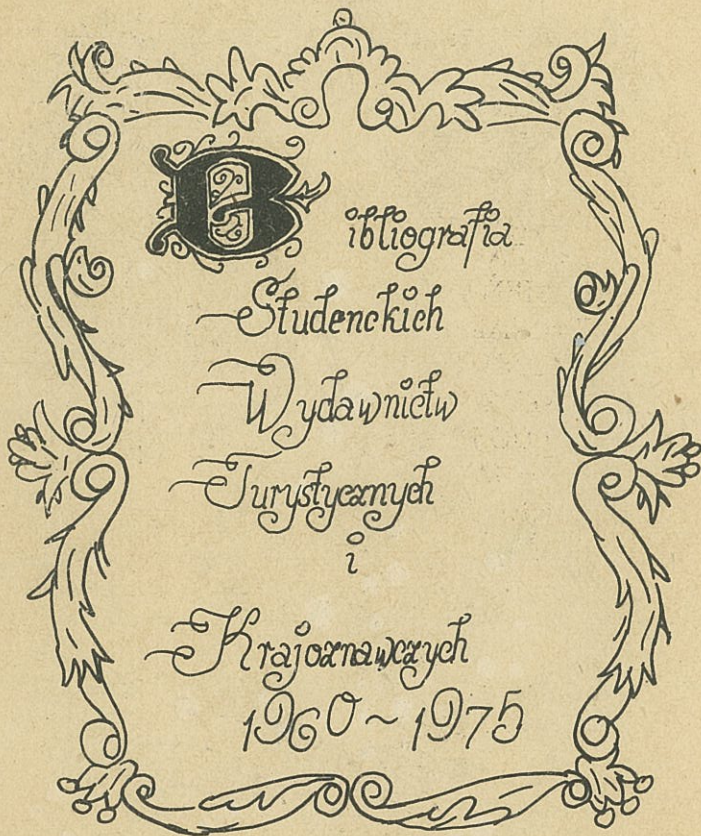 Bibliografia
Studenckich
Wydawnictw
Turystycznych
i
Krajoznawczych
1960 ~ 1975